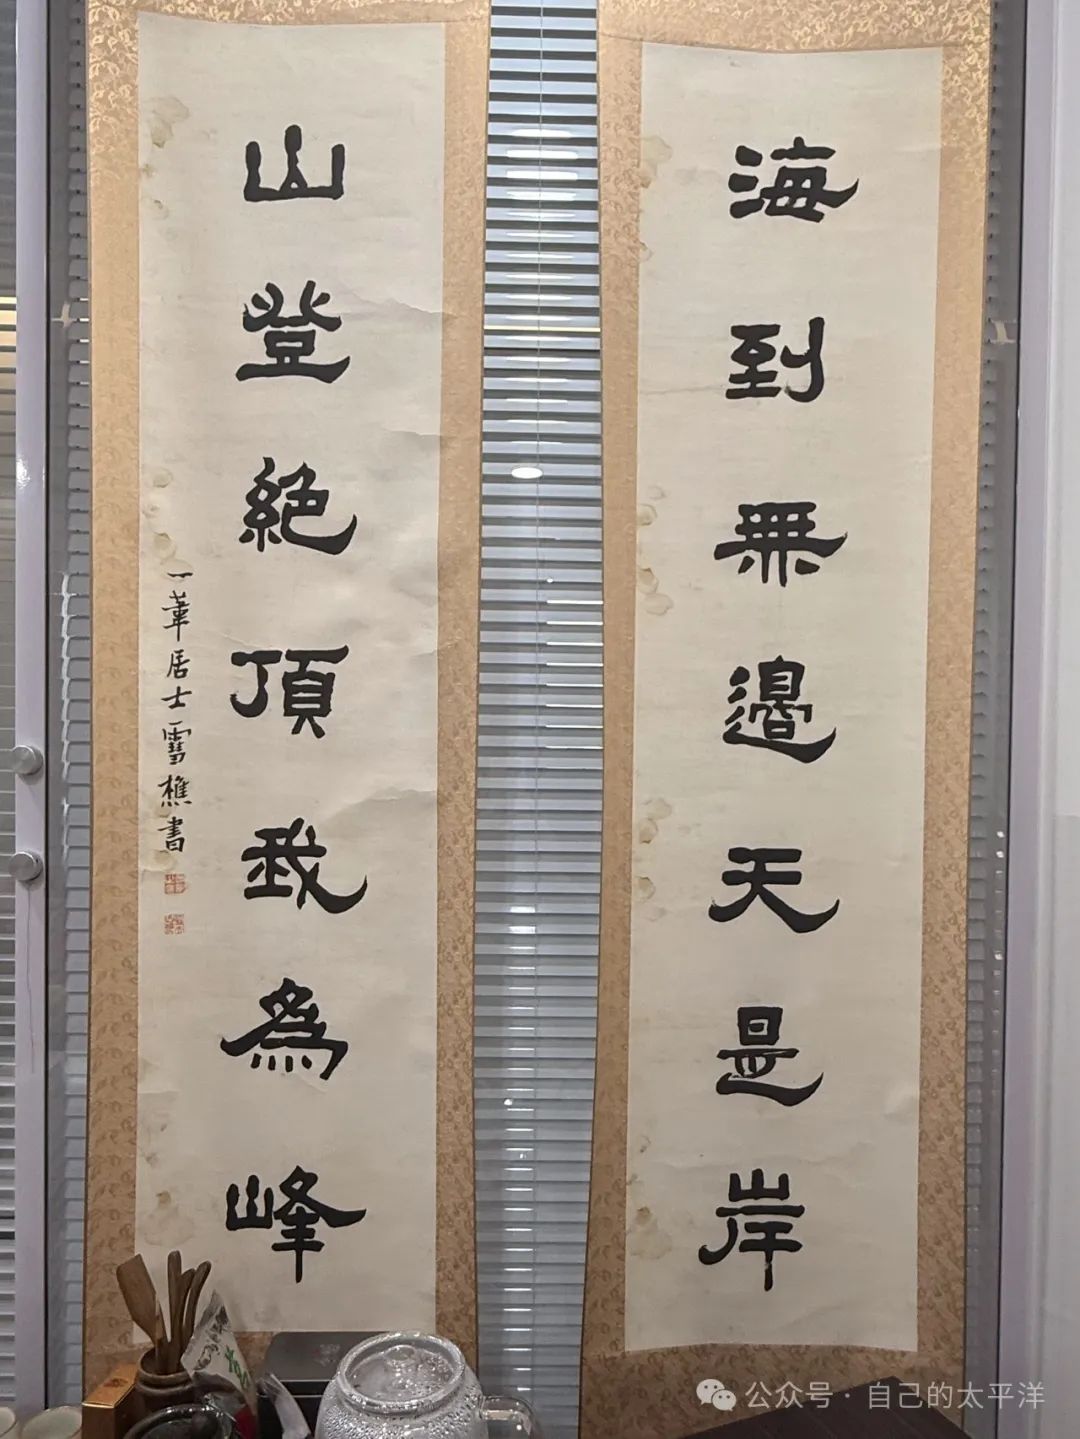 海到無邊天是岸
山登絕頂我為峰
一葦居士雪樵書
公众号·自己的太平洋